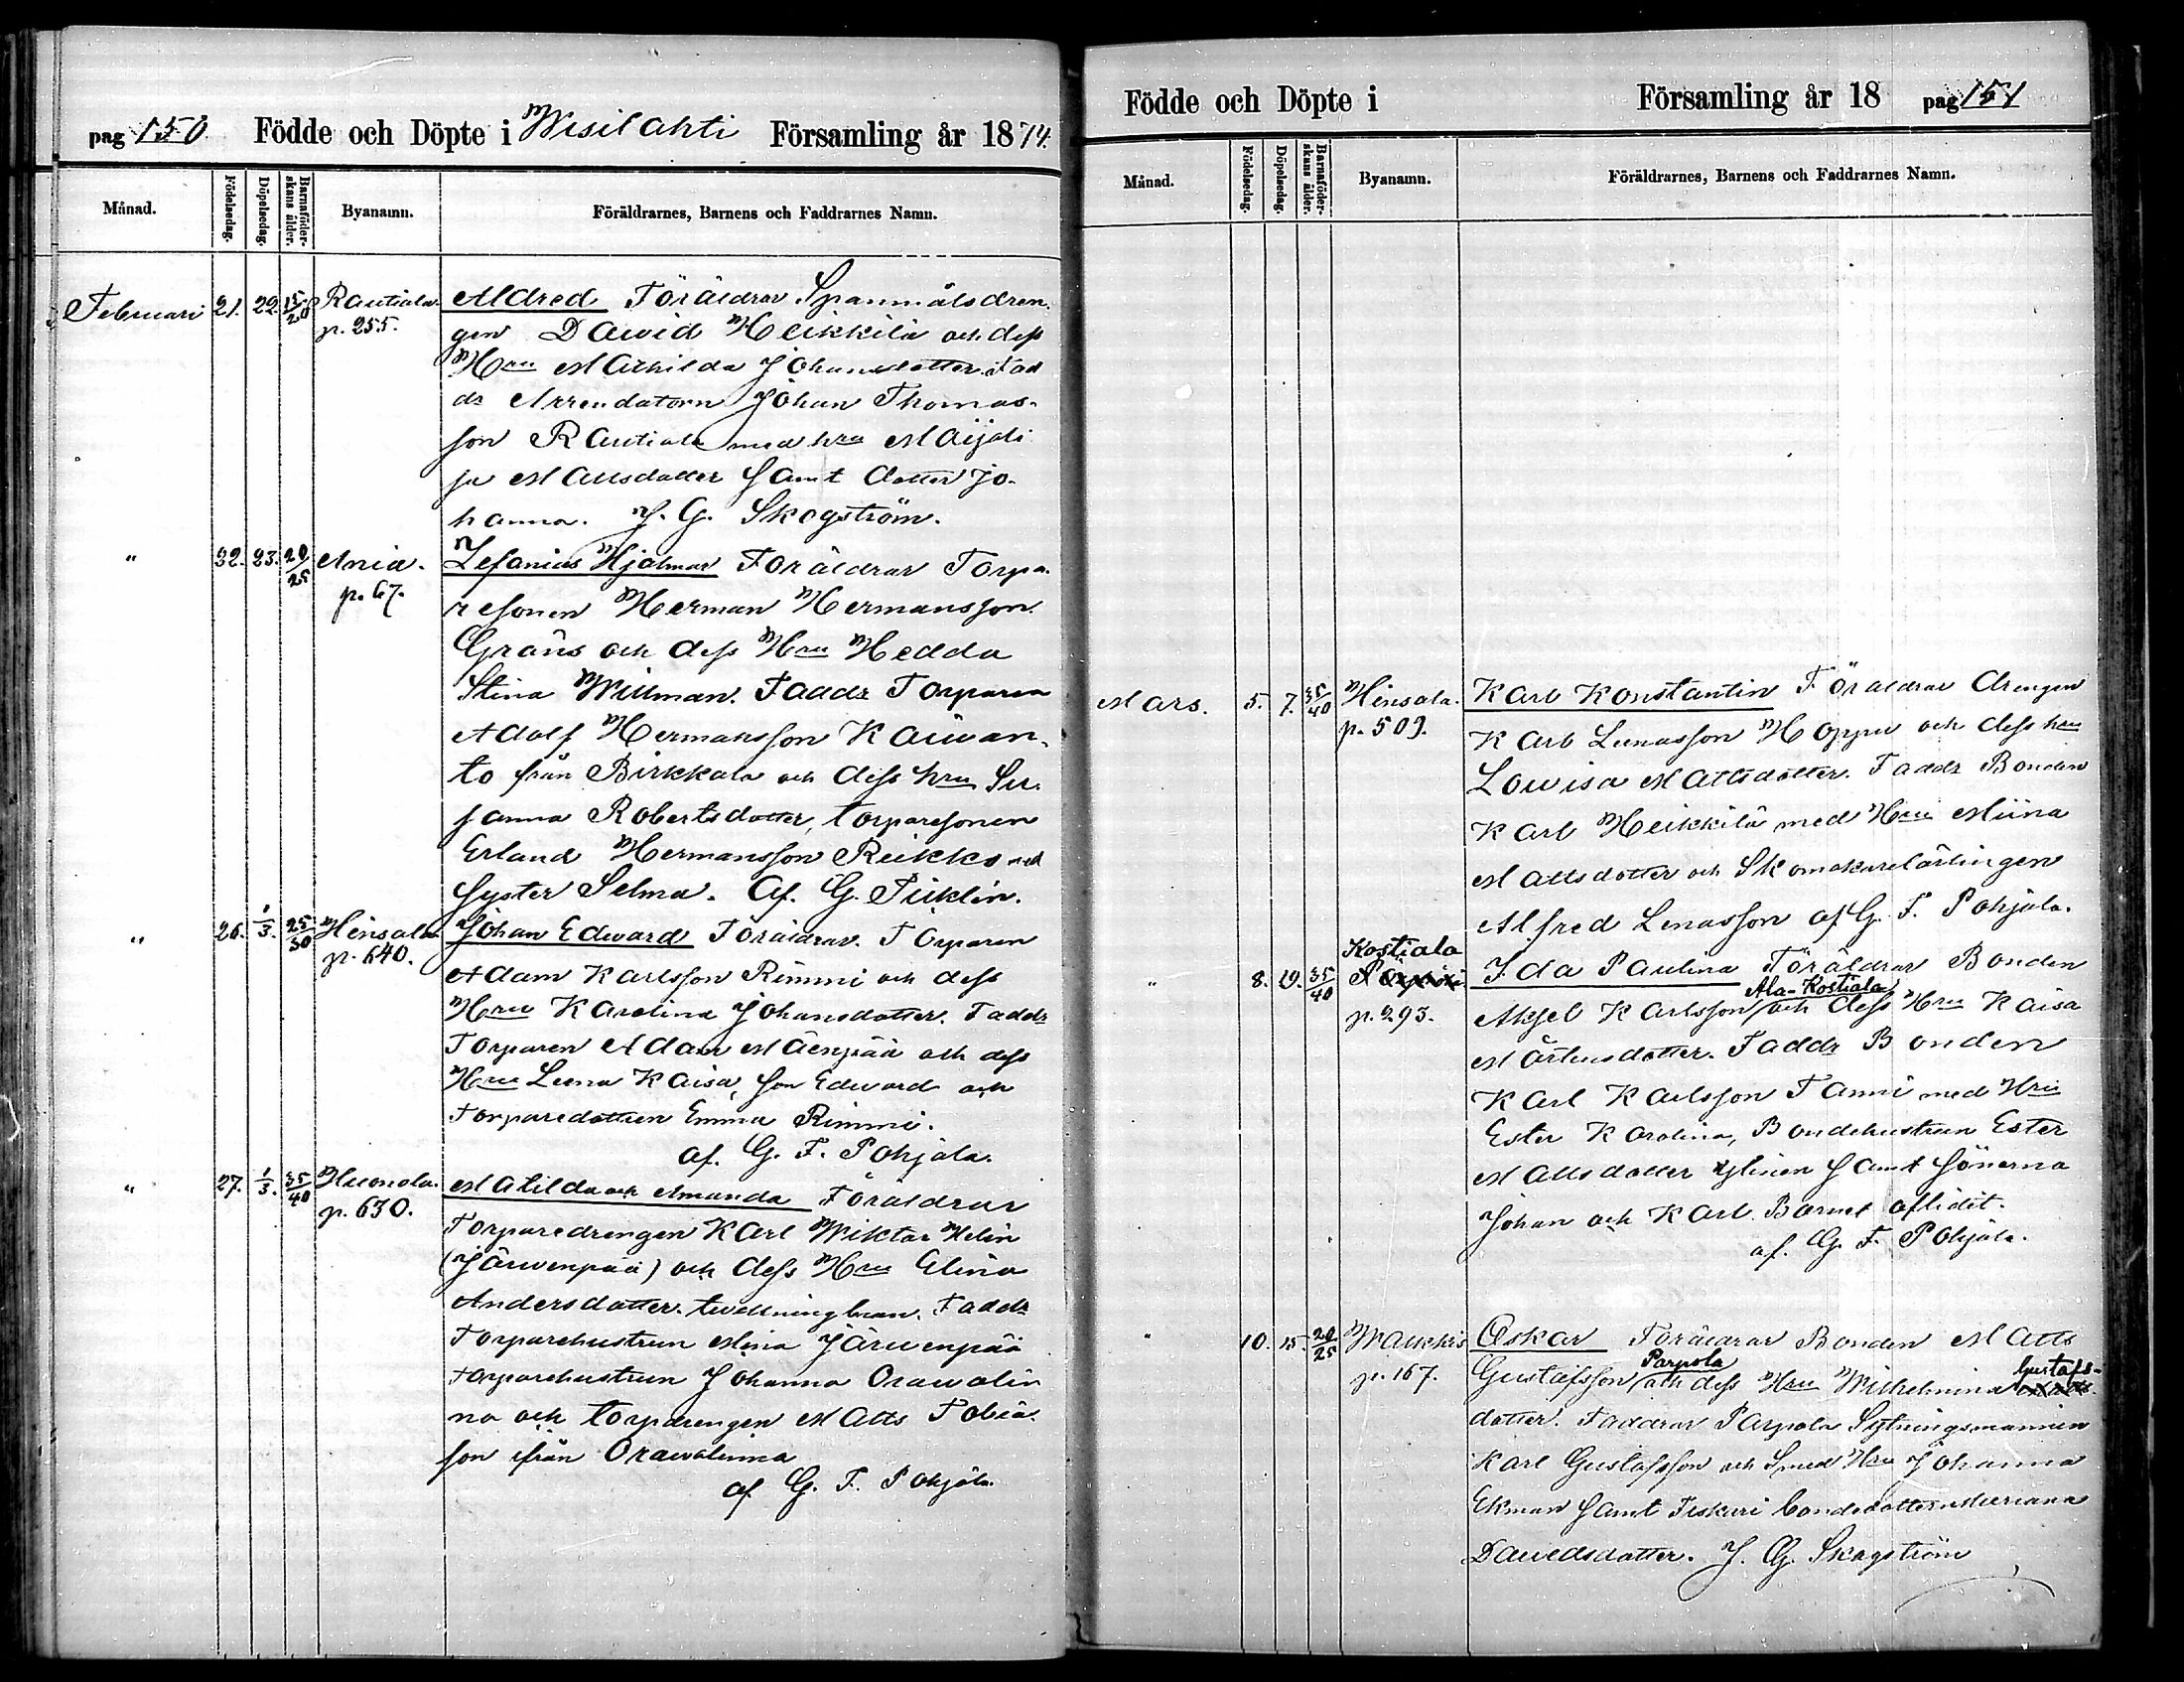 pag 150. Födde och Döpte i Wesilahti Församling år 1874.
Månad. Födelsedag. Döpelsedag. Barnaföderskans ålder. Byanamn. Föräldrarnes, Barnens och Faddrarnes Namn.
Februari 21. 22. 15/20 Rautiala. Aldred Föräldrar Spannmålsdren-
p. 255. gen Dawid Heikkilä och dess
Hru Mathilda Johansdotter. Fad
dr Arrendatorn Johan Thomas-
son Rautiala med hru Maija
Mattsdotter samt dotter Jo-
hanna. J. G. Skogström.
" 22. 23. 20/25 Ania. Zefanias Hjalmar Föräldrar Torpa-
p. 67. resonen Herman Hermansson
Gräns och dess Hru Hedda
Stina Willman. Faddr Torparen
Adolf Hermansson Kaiwan-
to från Birkkala och dess hru Su-
sanna Robertsdotter, torparesonen
Erland Hermansson Reikko med
syster Selma. Af. G. Piiklin.
" 26. 1/3. 25/30 Hinsala Johan Edward Föräldrar. Torparen
p. 640. Adam Karlsson Rimmi och dess
Hru Karolina Johansdotter. Faddr
Torparen Adam Mäenpää och dess
Hru Leena Kaisa, son Edward och
Torparedottren Emma Rimmi.
af. G. F. Pohjala.
" 27. 1/3. 35/40 Huonola. Matilda och Amanda Föräldrar
p. 630. Torparedrengen Karl Wiktor Helin
(Järwenpää) och dess Hru Elina
Andersdotter. twillningbarn. Faddr
Torparehustrun Miina Järwenpää
torparehustrun Johanna Orawalin
na och torpdrengen Matts Tobia-
son ifrån Orawalinna
af G. F. Pohjala.
Födde och Döpte i Församling år 18 pag 151
Månad. Födelsedag. Döpelsedag. Barnaföderskans ålder. Byanamn. Föräldrarnes, Barnens och Faddrarnes Namn.
Mars. 5. 7. 35/40 Hinsala. Karl Konstantin Föräldrar drengen
p. 509. Karl Lenasson Hoppu och dess hru
Lowisa Mattsdotter. Faddr Bonden
Karl Heikkilä med Hru Miina
Mattsdotter och Skomakarelärlingen
Alfred Lenasson af G. F. Pohjala.
Kostiala
" 8. 19. 35/40 Ida Paulina Föräldrar Bonden
Ala-Kostiala
p. 293. Aksel Karlsson och dess Hru Kaisa
Mårtensdotter. Faddr Bonden
Karl Karlsson Tanni med Hru
Ester Karolina, Bondehustrun Ester
Mattsdotter samt sönerna
Johan och Karl. Barnet aflidit.
af. G. F. Pohjala.
" 10. 15. 20/25 Oskar Föräldrar Bonden Matts
Parpola Gustafs-
p. 167. Gustafsson och dess Hru Wilhelmina
dotter. Faddrar Parpola Sytningsmannen
Karl Gustafsson och Smed Hru Johanna
Ekman samt Fiskari bondedotter Mariana
Dawidsdotter. J. G. Skogström